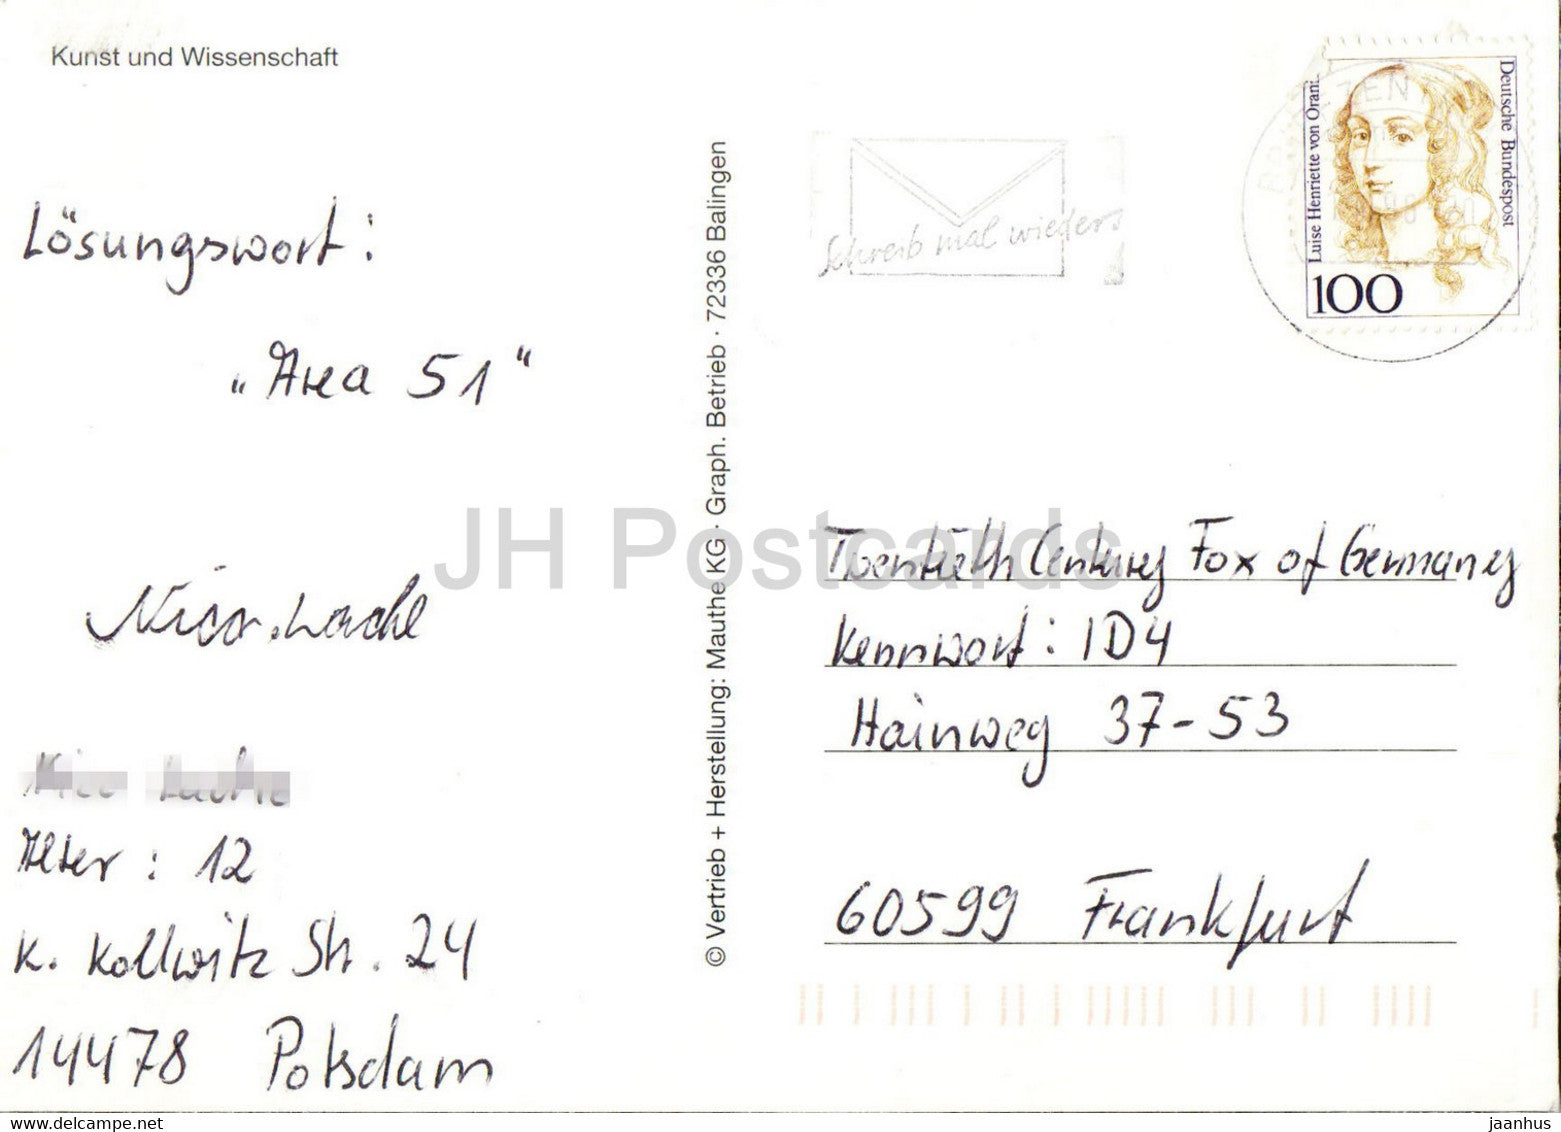 Kunst und Wissenschaft
Lösungswort:
„Area 51“
Alter: 12
K. Kollwitz Str. 24
14478 Potsdam
© Vertrieb + Herstellung: Mauthe KG · Graph. Betrieb · 72336 Balingen
Schreib mal wieder
Luise Henriette von Orani.
Deutsche Bundespost
100
Twentieth Century Fox of Germany
Kennwort: ID4
Hainweg 37-53
60599 Frankfurt
JH Postcards
www.delcampe.net
jaanhus